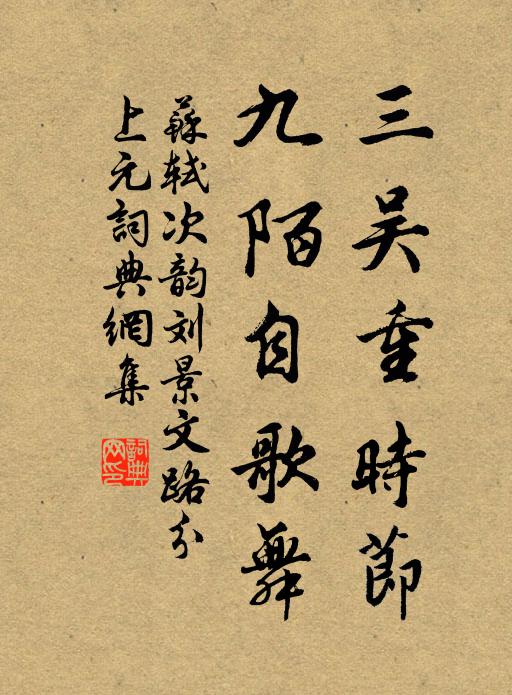 三吴重時節
九陌自歌舞
蘇軾次韵刘景文路分
上元詞典網集
詞典
网印